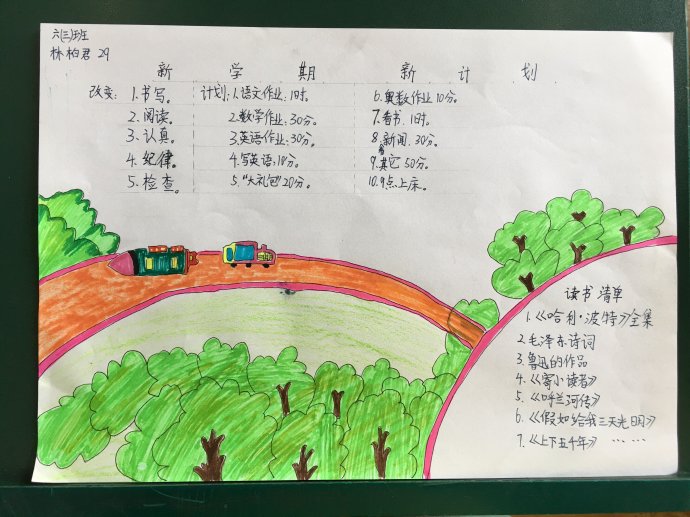 六(三)班
林柏君 29
新 学 期 新 计 划
改变: 1.书写。 计划: 1.语文作业:1时。 6.奥数作业10分。
2.阅读。 2.数学作业:30分。 7.看书:1时。
3.认真。 3.英语作业:30分。 8.看新闻:30分。
4.纪律。 4.写英语:10分。 9.其它50分。
5.检查。 5."大礼包"20分。 10.9点上床。
读书清单
1.《哈利·波特》全集
2.毛泽东诗词
3.鲁迅的作品
4.《寄小读者》
5.《呼兰河传》
6.《假如给我三天光明》
7.《上下五千年》 ……